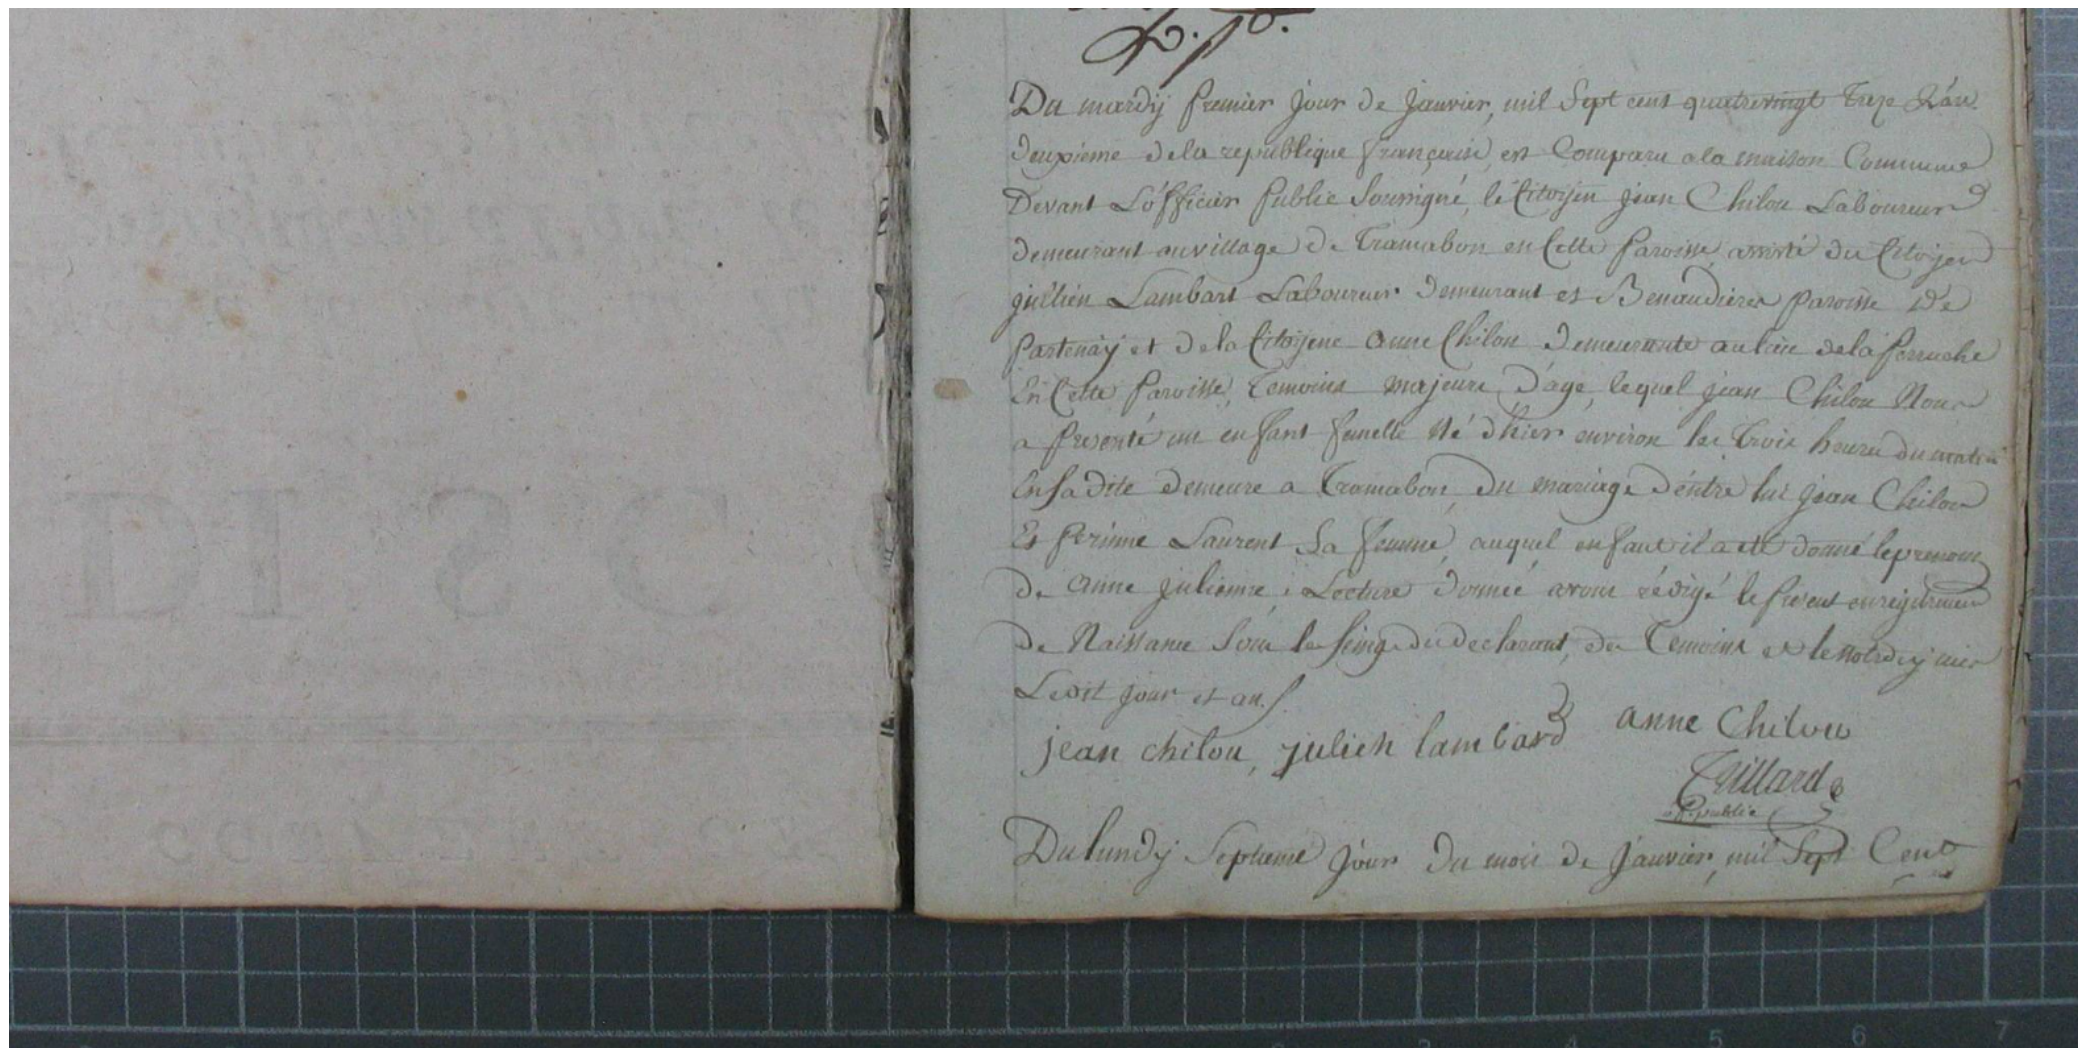 Du mardy premier jour de janvier, mil Sept cent quatrevingt treze L'an
deuxieme dela republique françaisse, est Comparu ala maison Commune
Devant L'officier public Soussigné, le Citoyen jean Chilou Laboureur
demeurant au village de Tramabon en Cette paroisse, assisté du Citoyen
julien Lambart Laboureur demeurant es Benaudieres paroisse De
partenay et dela Citoyene anne Chilou demeurante au lieu dela perruche
En Cette paroisse, temoins majeurs d'age, lequel jean Chilou Nous
a presenté un enfant femelle Né d'hier environ les trois heures du matin
En sa dite demeure a Tramabon, du mariage d'entre lui jean Chilou
Et perinne Laurent Sa femme, auquel enfant il a eté donné le prenom
de anne julienne ; Lecture donnée avons rédigé le present enregistrement
de Naissance sous les seings du declarant, des temoins et le notre dy mis
Ledit jour et an.
jean chilou, julien lambard anne Chilou
Tuillard
of. public
Du lundy Septieme jour du mois de janvier, mil Sept Cent